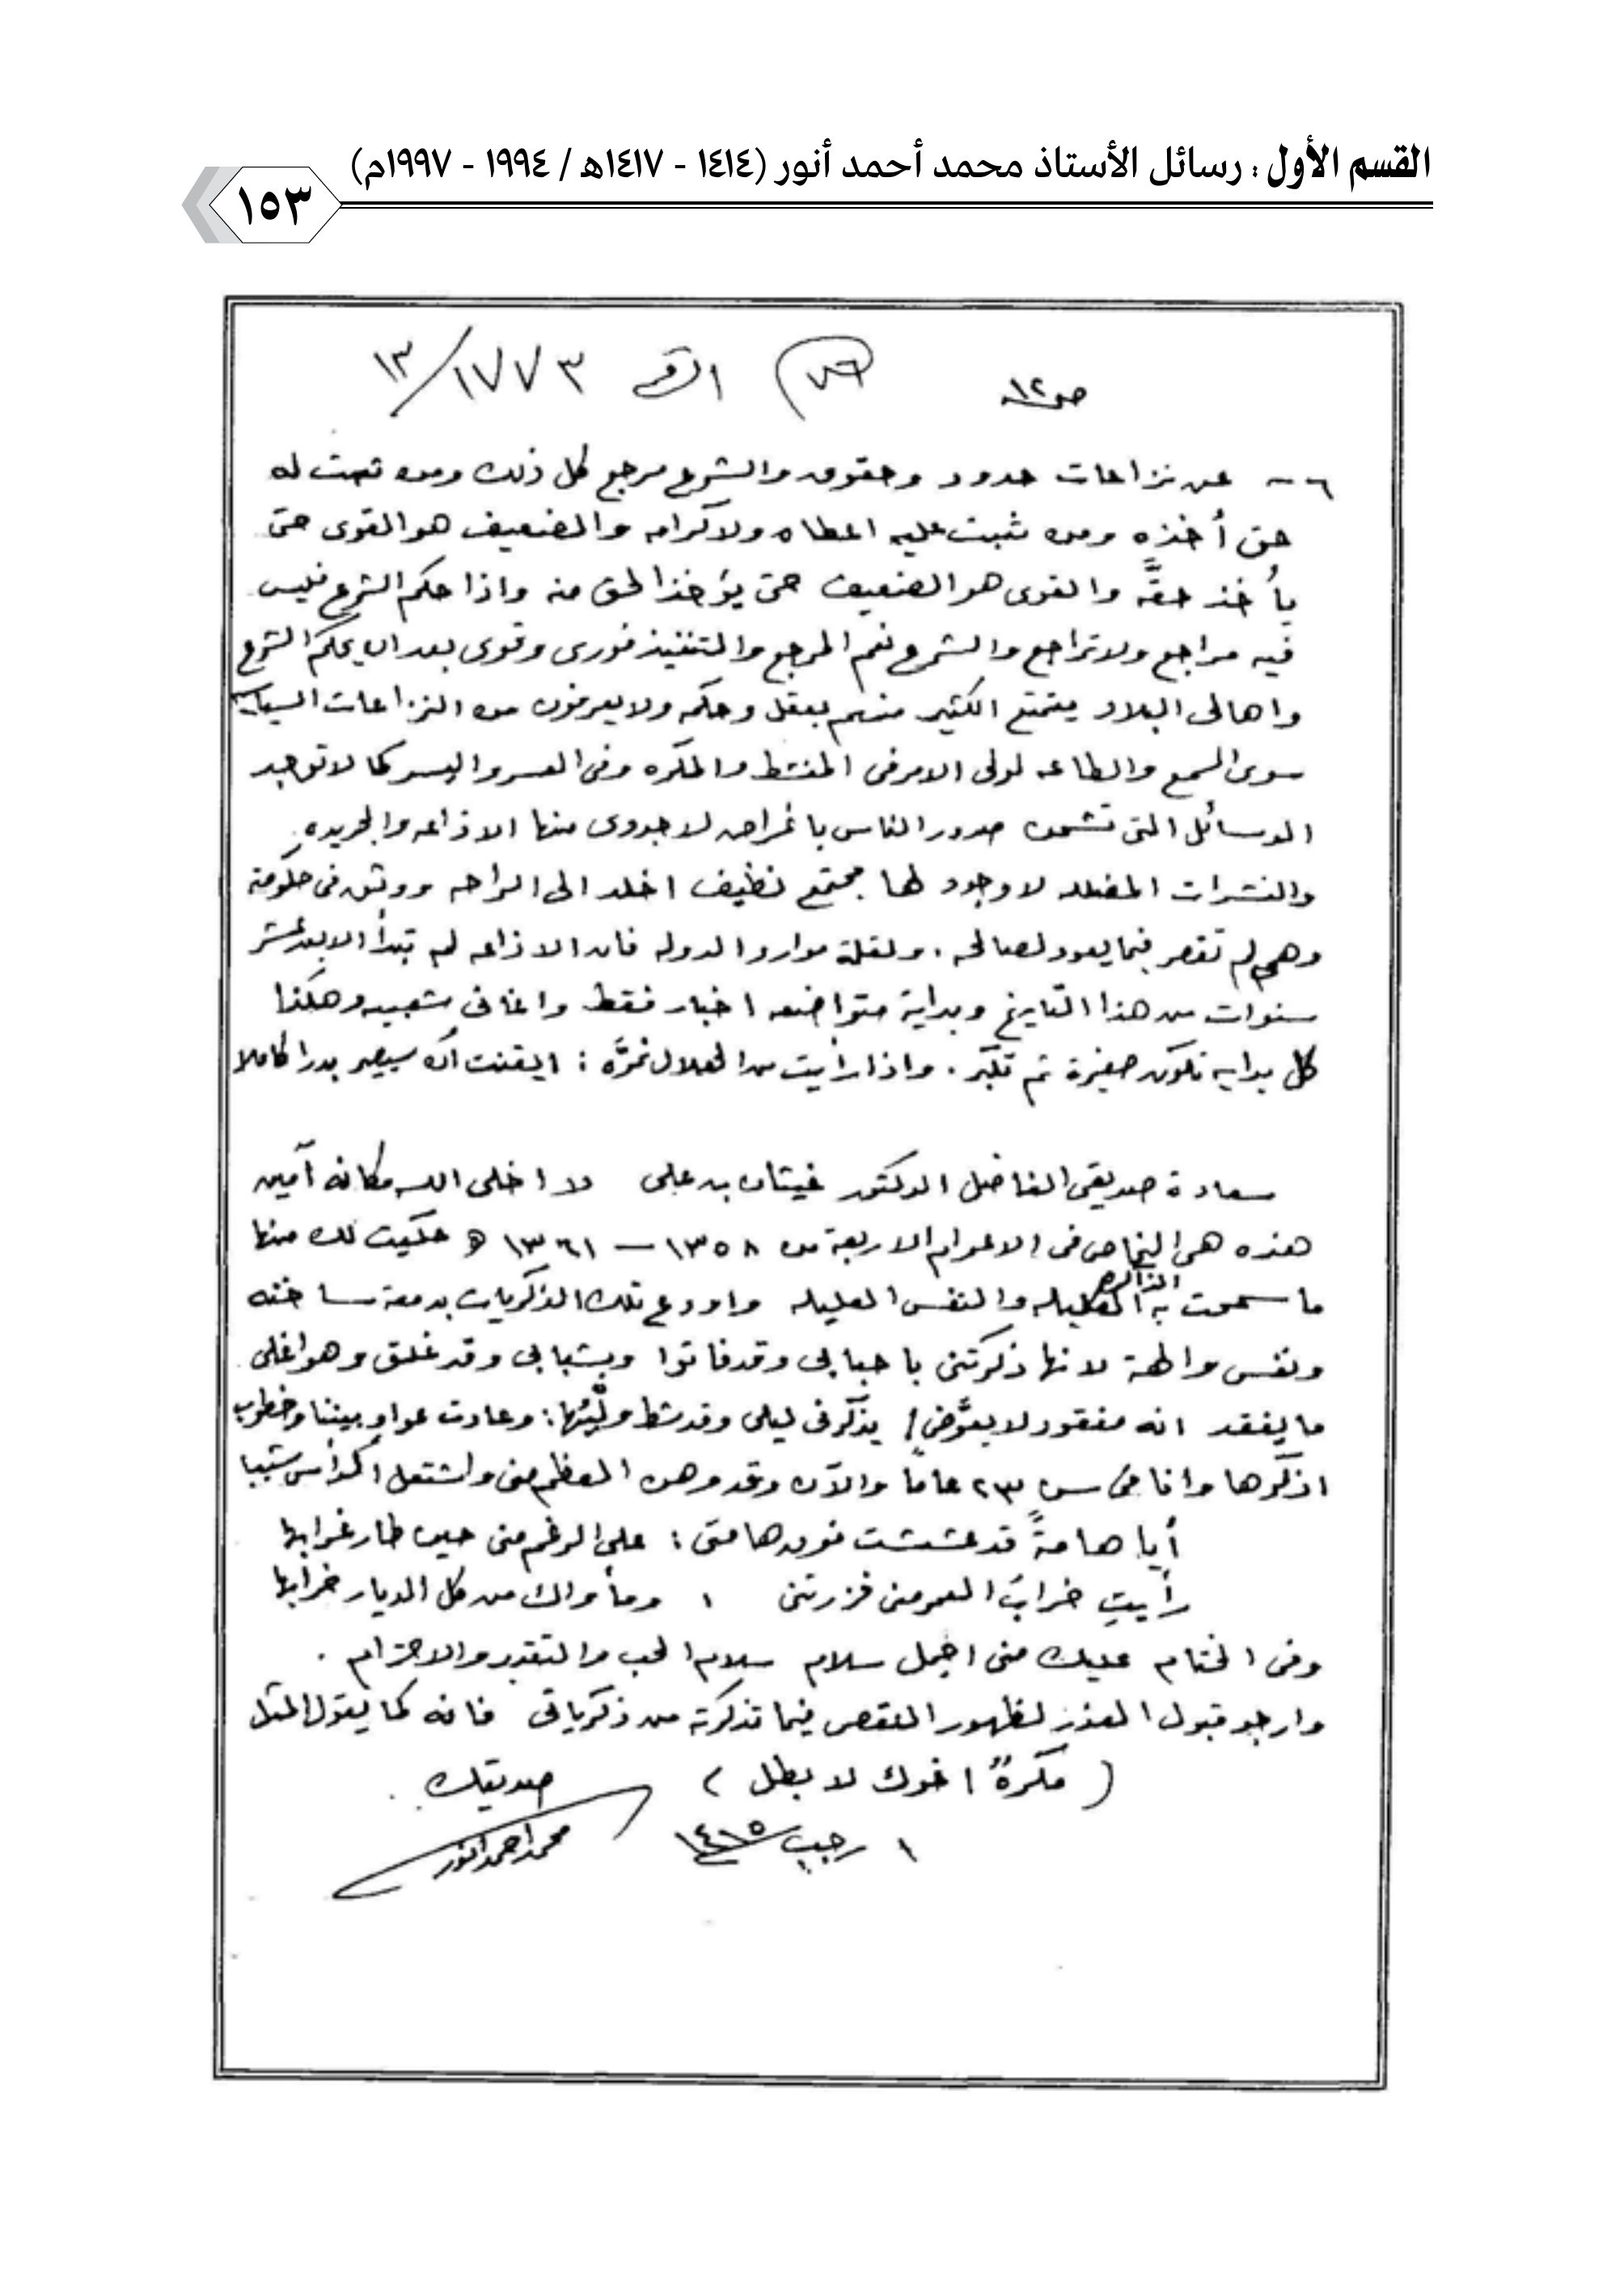 القسم الأول : رسائل الأستاذ محمد أحمد أنور (١٤١٤ - ١٤١٧هـ / ١٩٩٤ - ١٩٩٧م)
١٥٣
ص١٢ ٧٦ الرقم ١٧٧٣/١٣
٦ - عن نزاعات حدود وحقوق والشرع مرجع كل ذلك ومن تحت له
حق أخذه ومن ثبت عليه اعطاه ولا كرامه والضعيف هو القوى حتى
يأخذ حقَّه والقوى هو الضعيف حتى يؤخذ الحق منه واذا حكم الشرع فليس
فيه مراجع ولا تراجع والشرع نعم المرجع والتنفيذ فورى وقوى بعد ان يحكم الشرع
واهالى البلاد يتمتع الكثير منهم بعقل وحكمه ولا يعرفون من النزاعات السياسيه
سوى السمع والطاعه لولى الامر فى المنشط والمكره وفى العسر واليسر كما لا توجد
الوسائل التى تشحن صدور الناس باغراض لا جدوى منها الاذاعه والجريده
والنشرات المضلله لا وجود لها مجتمع نظيف اخلد الى الراحه ووثق فى حكومته
وهى لم تقصر فيما يعود لصالحه . ولقلة موارد الدوله فان الاذاعه لم تبدأ الا بعد عشر
سنوات من هذا التاريخ وبداية متواضعه اخبار فقط واغانى شعبيه وهكذا
كل بدايه تكون صغيرة ثم تكبر . واذا رأيت من الهلال نموَّه : ايقنت أن سيصير بدرا كاملا
سعادة صديقى الفاضل الدكتور غيثان بن على لا اخلى الله مكانه آمين
هذه هى النماص فى الاعوام الاربعة من ١٣٥٨ – ١٣٦١ هـ حكيت لك منها
ما سمحت به الذاكره الكليله والنفس العليله واودع تلك الذكريات بدمعة ساخنه
ونفس والهة لانها ذكرتنى باحبابى وقد فاتوا وبشبابى وقد غلق وهو اغلى
ما يفقد انه مفقود لا يعوَّض / يذكرنى ليلى وقد شط وليُّها : وعادت عواد بيننا وخطوب
اذكرها وانا فى سن ٢٣ عاماً والآن وقد وهن العظم منى واشتعل الرأس شيبا
أيا هامةً قد عششت فوق هامتى : على الرغم منى حين طار غرابها
رأيتِ خرابَ العمر منى فزرتنى : ومأواك من كل الديار خرابها
وفى الختام عليك منى اجمل سلام سلام الحب والتقدير والاحترام .
وارجو قبول العذر لظهور النقص فيما تذكرته من ذكرياتى فانه كما يقول المثل
( مكرهٌ اخوك لا بطل ) صديقك
١ رجب ١٤١٥ محمد احمد انور